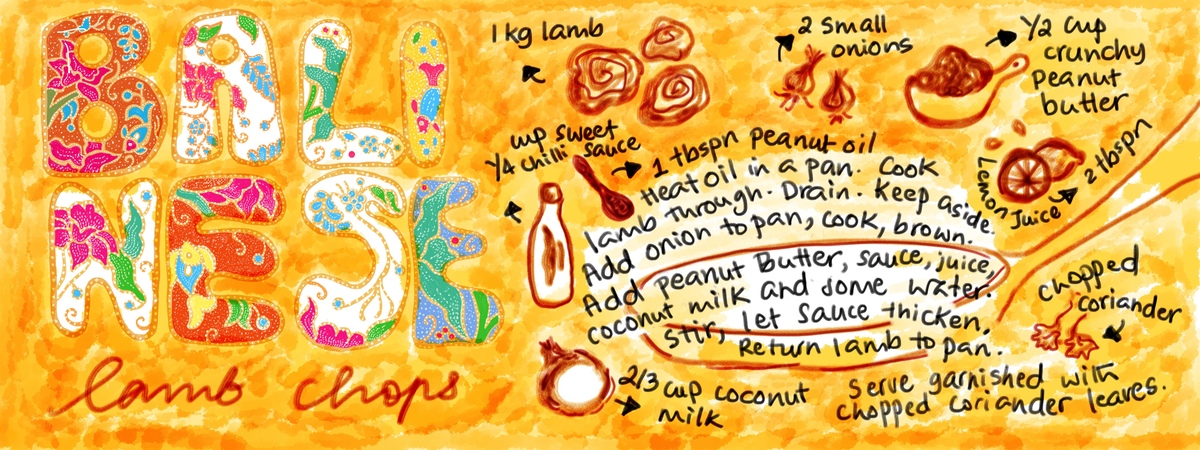 BALI
NESE
lamb chops
1 kg lamb
2 small
onions
1/2 cup
crunchy
peanut
butter
cup sweet
1/4 chilli sauce
1 tbspn peanut oil
Lemon Juice
2 tbspn
Heat oil in a pan. Cook
lamb through. Drain. Keep aside.
Add onion to pan, cook, brown.
Add peanut Butter, sauce, juice,
coconut milk and some water.
Stir, let sauce thicken.
Return lamb to pan.
chopped
coriander
2/3 cup coconut
milk
Serve garnished with
chopped coriander leaves.